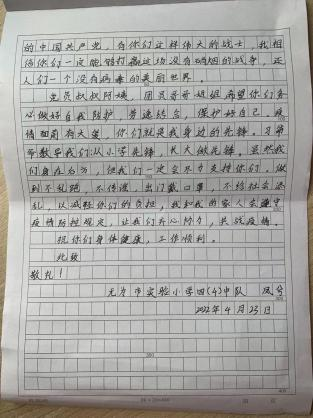 的中国共产党，有你们这样伟大的战士，我相
信你们一定能够打赢这场没有硝烟的战争，还
人们一个没有病毒的美丽世界。
党员叔叔阿姨，团员哥哥姐姐，希望你们务
必做好自我防护，劳逸结合，保护好自己。疫
情面前有大爱，你们就是我身边的先锋。习爷
爷教导我们：从小学先锋，长大做先锋。虽然我
们身在方，但我们一定会尽力支持你们，做
到不乱跑，不传谣，出门戴口罩，不给社会添
乱，以减轻你们的负担，我和我的家人会遵守
疫情防控规定，让我们齐心协力，共战疫情。
祝你们身体健康，工作顺利。
此致
敬礼！
无为市实验小学四(4)中队
2022年4月23日